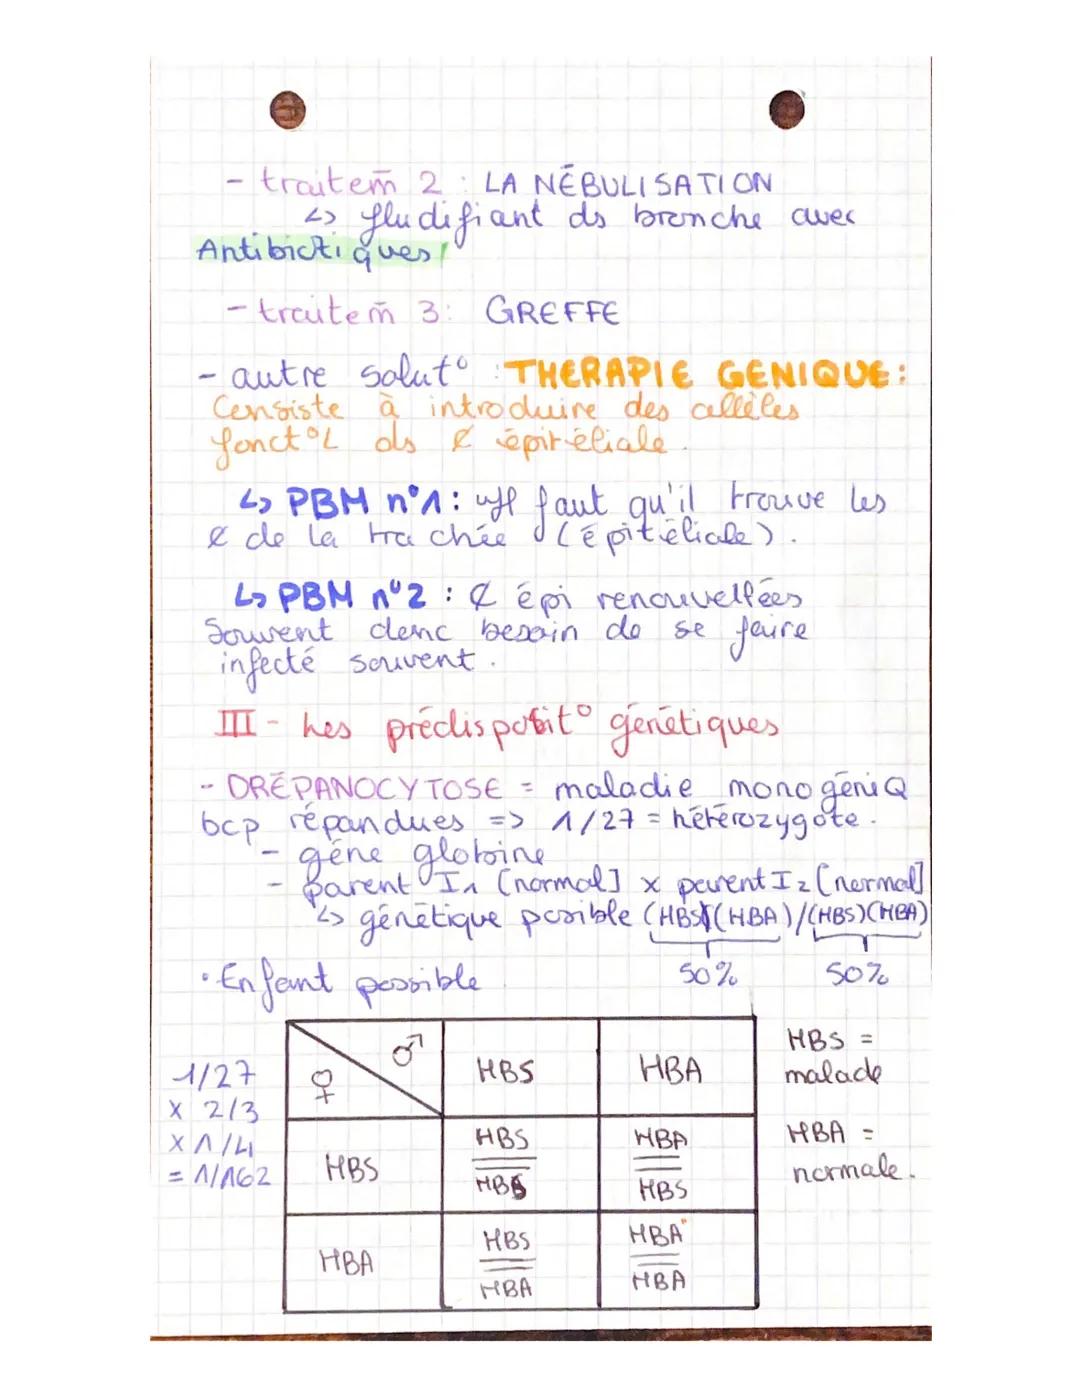 - traitem̄ 2 : LA NÉBULISATION
↳ fludifiant ds bronche avec
Antibiotiques
- traitem̄ 3 : GREFFE
- autre solut° : THERAPIE GENIQUE :
Consiste à introduire des allèles
fonct°L ds ¢ épitéliale.
↳ PBM n°1 : faut qu'il trouve les
¢ de la trachée (épitéliale).
↳ PBM n°2 : ¢ épi renouvellées
Souvent donc besoin de se faire
infecté souvent.
III - Les prédisposit° génétiques
- DRÉPANOCYTOSE = maladie monogéniQ
bcp répandues => 1/27 = hétérozygote.
- gène globine
- parent I1 [normal] x parent I2 [normal]
↳ génétique possible (HBS)(HBA)/(HBS)(HBA)
50% 50%
• Enfant possible
♀ ♂ HBS HBA
HBS HBS/HBS HBA/HBS
HBA HBS/HBA HBA/HBA
1/27
x 2/3
x 1/4
= 1/162
HBS =
malade
HBA =
normale.